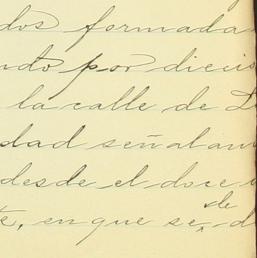 dos formada
ndo por diecis
la calle de D
dad señalan
desde el doce
te, en que se de d